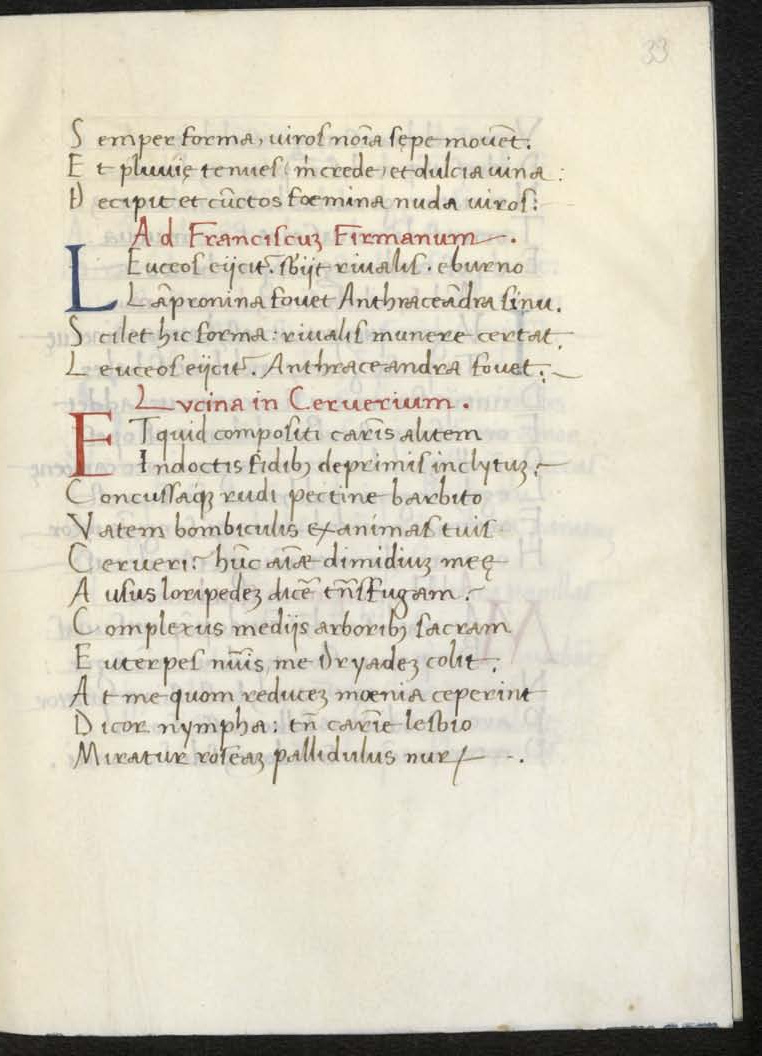 33
S emper forma, uiros nōīa sępe mouēt.
E t pluuię tenues (m̄ crede) et dulcia uina :
D ecipit et cūctos foemina nuda uiros :
Ad Franciscuꝫ Firmanum .
L Euceos eijcit᷑. sb̄ijt riualis . eburno
Lāpronina fouet Anthraceādra sinu.
S cilet hic forma : riualis munere certat.
L euceos eijcit᷑. Anthraceandra fouet :
Lvcina in Ceruerium .
E Tquid compositi carīs alitem
Indoctis fidibꝫ deprimis inclytuꝫ :
C oncussaqꝫ rudi pectine barbito
V atem bombiculis exanimas tuis
C erueri : hūc aīæ dimidiuꝫ meę
A usus loripedeꝫ dicē tn̄s fugam :
C omplexus medijs arboribꝫ sacram
E uterpes nūīs, me Dryadeꝫ colit :
A t me quom reduceꝫ moenia ceperint
D icor nympha : tn̄ carīe lesbio
M iratur roseaꝫ pallidulus nur